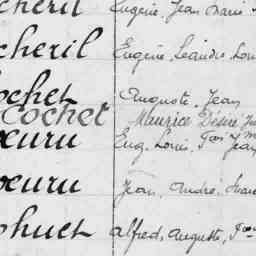 cheril Eugène, Jean Marie
cheril Eugène, Léandre, Lou
ochet Auguste, Jean
cochet Maurice Désiré
œuru Eug. Louis, Jean
œuru Jean, André,
ohuet Alfred, Auguste,